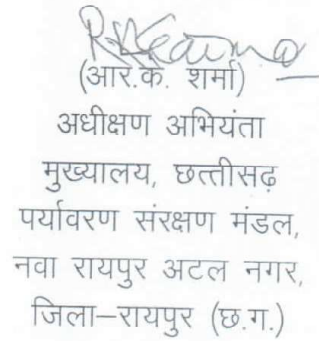 (आर.के. शर्मा)
अधीक्षण अभियंता
मुख्यालय, छत्तीसढ़
पर्यावरण संरक्षण मंडल,
नवा रायपुर अटल नगर,
जिला–रायपुर (छ.ग.)